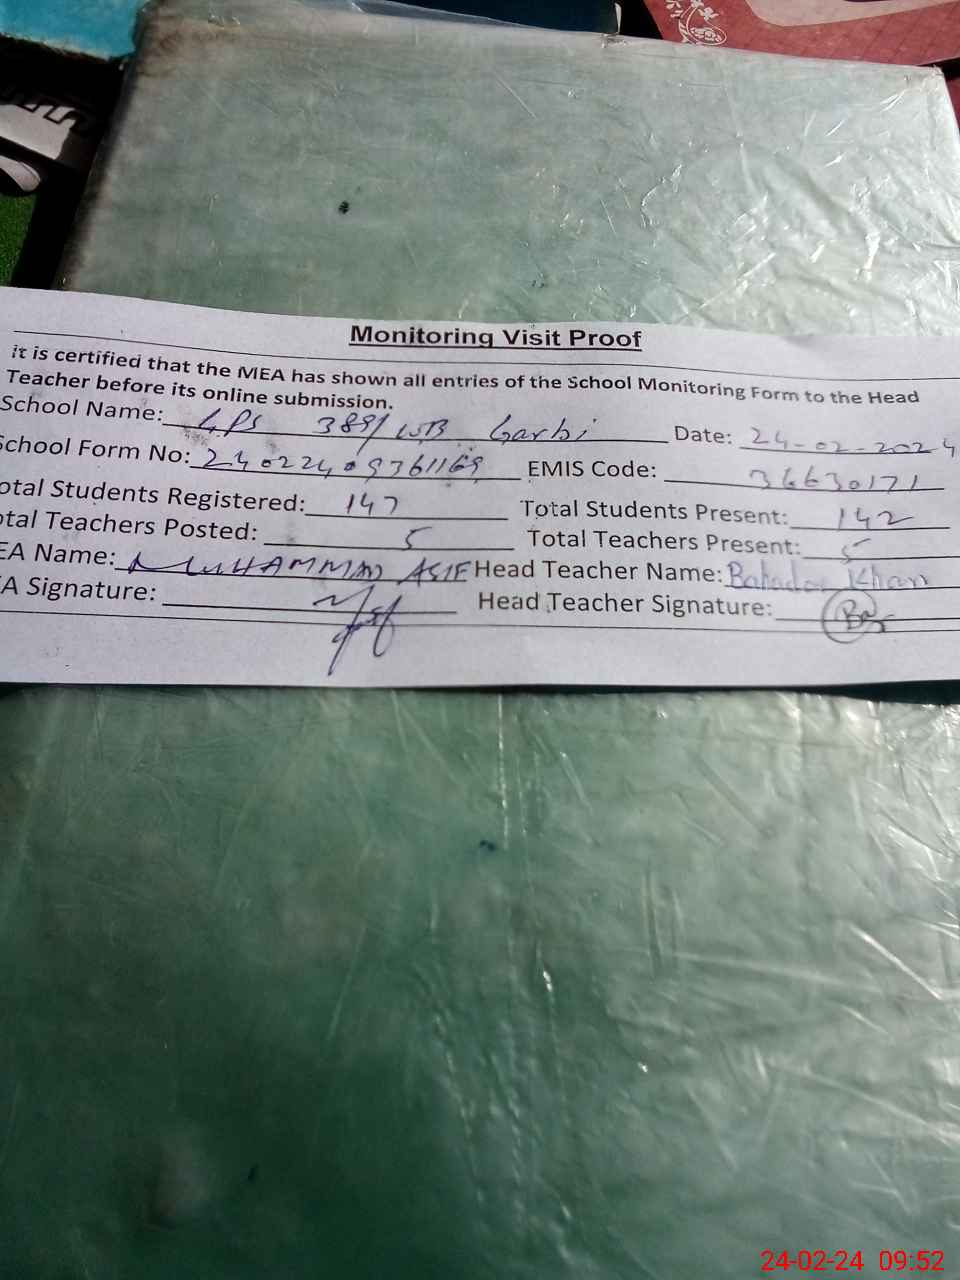 Monitoring Visit Proof
it is certified that the MEA has shown all entries of the School Monitoring Form to the Head
Teacher before its online submission.
School Name: GPS 389/WB Garbi Date: 24-02-2024
School Form No: 24022409361169 EMIS Code: 36630171
otal Students Registered: 147 Total Students Present: 142
otal Teachers Posted: 5 Total Teachers Present: 5
EA Name: MUHAMMAD ASIF Head Teacher Name: Bahadar Khan
A Signature: Head Teacher Signature:
24-02-24 09:52